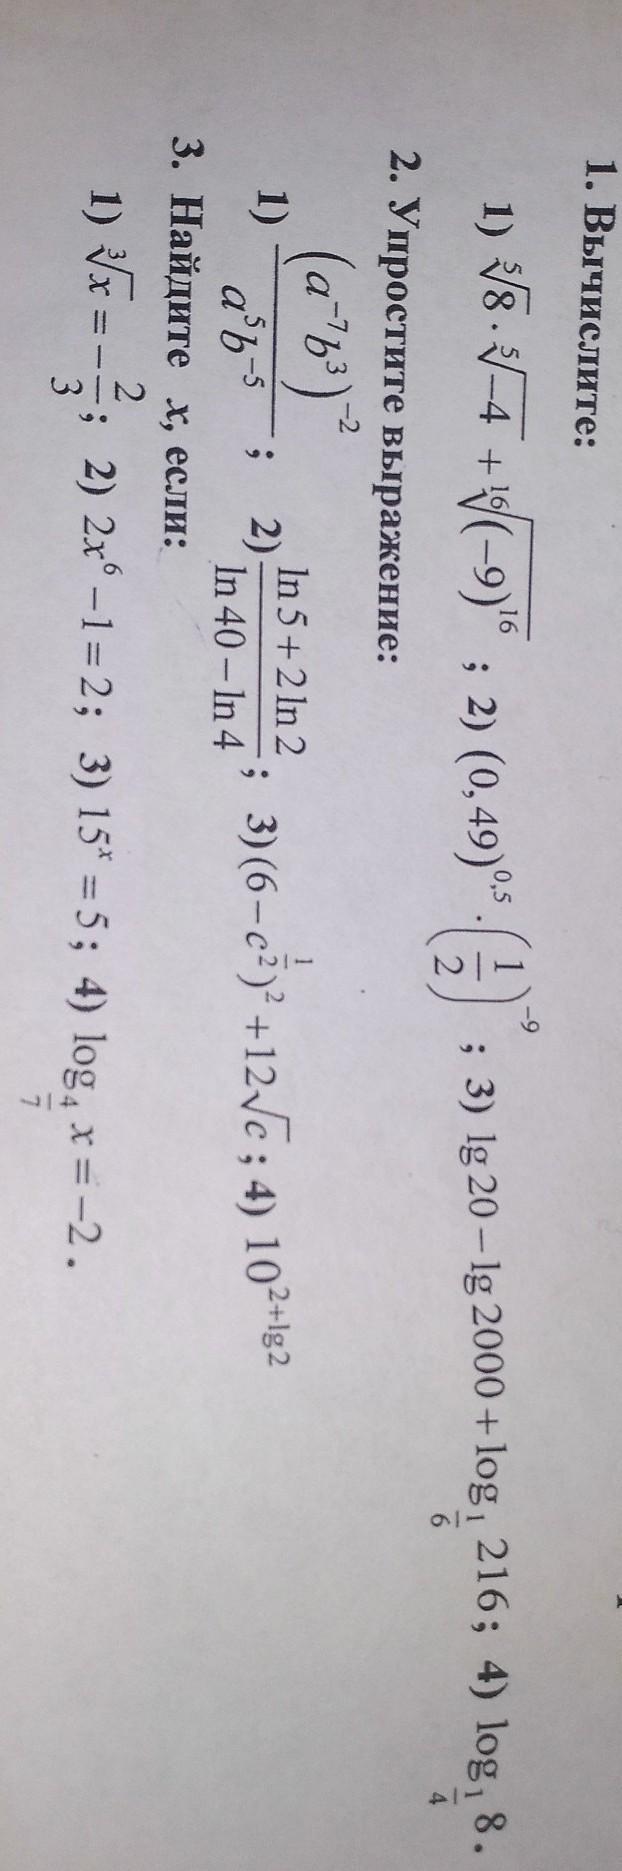 1. Вычислите:
1) ⁵√8 · ⁵√−4 + ¹⁶√(−9)¹⁶ ; 2) (0,49)^0,5 · (1/2)^−9 ; 3) lg 20 − lg 2000 + log_1/6 216; 4) log_1/4 8.
2. Упростите выражение:
1) (a^−7 b^3)^−2 / a^5 b^−5 ; 2) ln 5 + 2 ln 2 / ln 40 − ln 4 ; 3) (6 − c^1/2)^2 + 12√c ; 4) 10^2+lg2
3. Найдите x, если:
1) ³√x = −2/3 ; 2) 2x^6 − 1 = 2; 3) 15^x = 5; 4) log_4/7 x = −2.